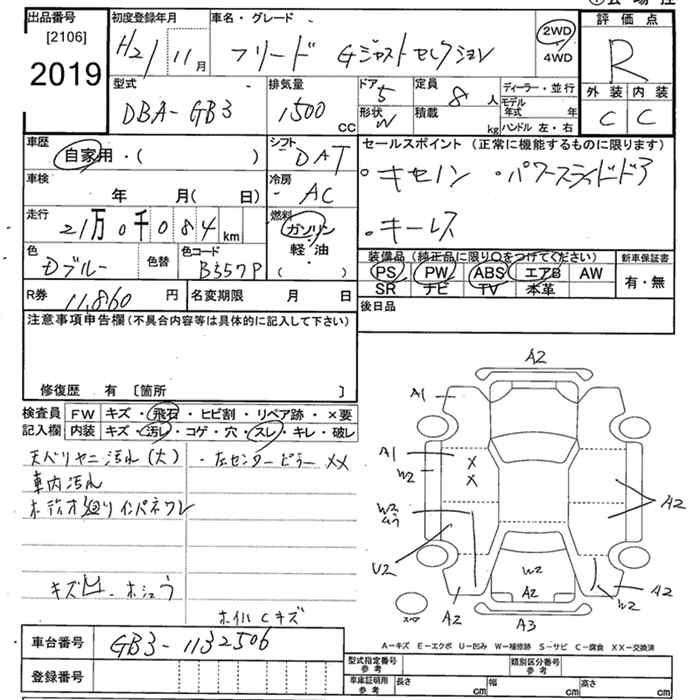 出品番号 初度登録年月 車名・グレード 評価点
[2106] H21 11月 フリード Gジャストセレクション 2WD 4WD R
2019
外装 内装
C C
型式 排気量 ドア 定員 ディーラー・並行
DBA-GB3 1500 CC 5 8人 モデル年式 年
形状 W 積載 kg ハンドル 左・右
車歴 シフト セールスポイント (正常に機能するものに限ります)
自家用・( ) DAT ・キセノン ・パワースライドドア
車検 冷房
年 月(日) AC ・キーレス
走行 燃料
21万0千084km ガソリン
軽・油
( )
色 色替 色コード 装備品 (純正品に限り○をつけてください) 新車保証書
Dブルー B557P PS PW ABS エアB AW 有・無
SR ナビ TV 本革
R券 11,860円 名変期限 月 日 後日品
注意事項申告欄(不具合内容等は具体的に記入して下さい)
修復歴 有 [箇所 ]
検査員 FW キズ・飛石・ヒビ割・リペア跡・×要
記入欄 内装 キズ・汚レ・コゲ・穴・スレ・キレ・破レ
天バリヤニ汚れ(大) ・左センターピラーXX
車内汚れ
オーディオ廻りインパネワレ
ホイルCキズ
A2
A1
A1 X
W2 X
W2
ムラ A2
U2
W2
A2 A2 W2 A2
スペア A3
A-キズ E-エクボ U-凹み W-補修跡 S-サビ C-腐食 XX-交換済
車台番号 GB3-1132506
型式指定番号 参考 類別区分番号 参考
登録番号 車庫証明用 参考 長さ cm 幅 cm 高さ cm